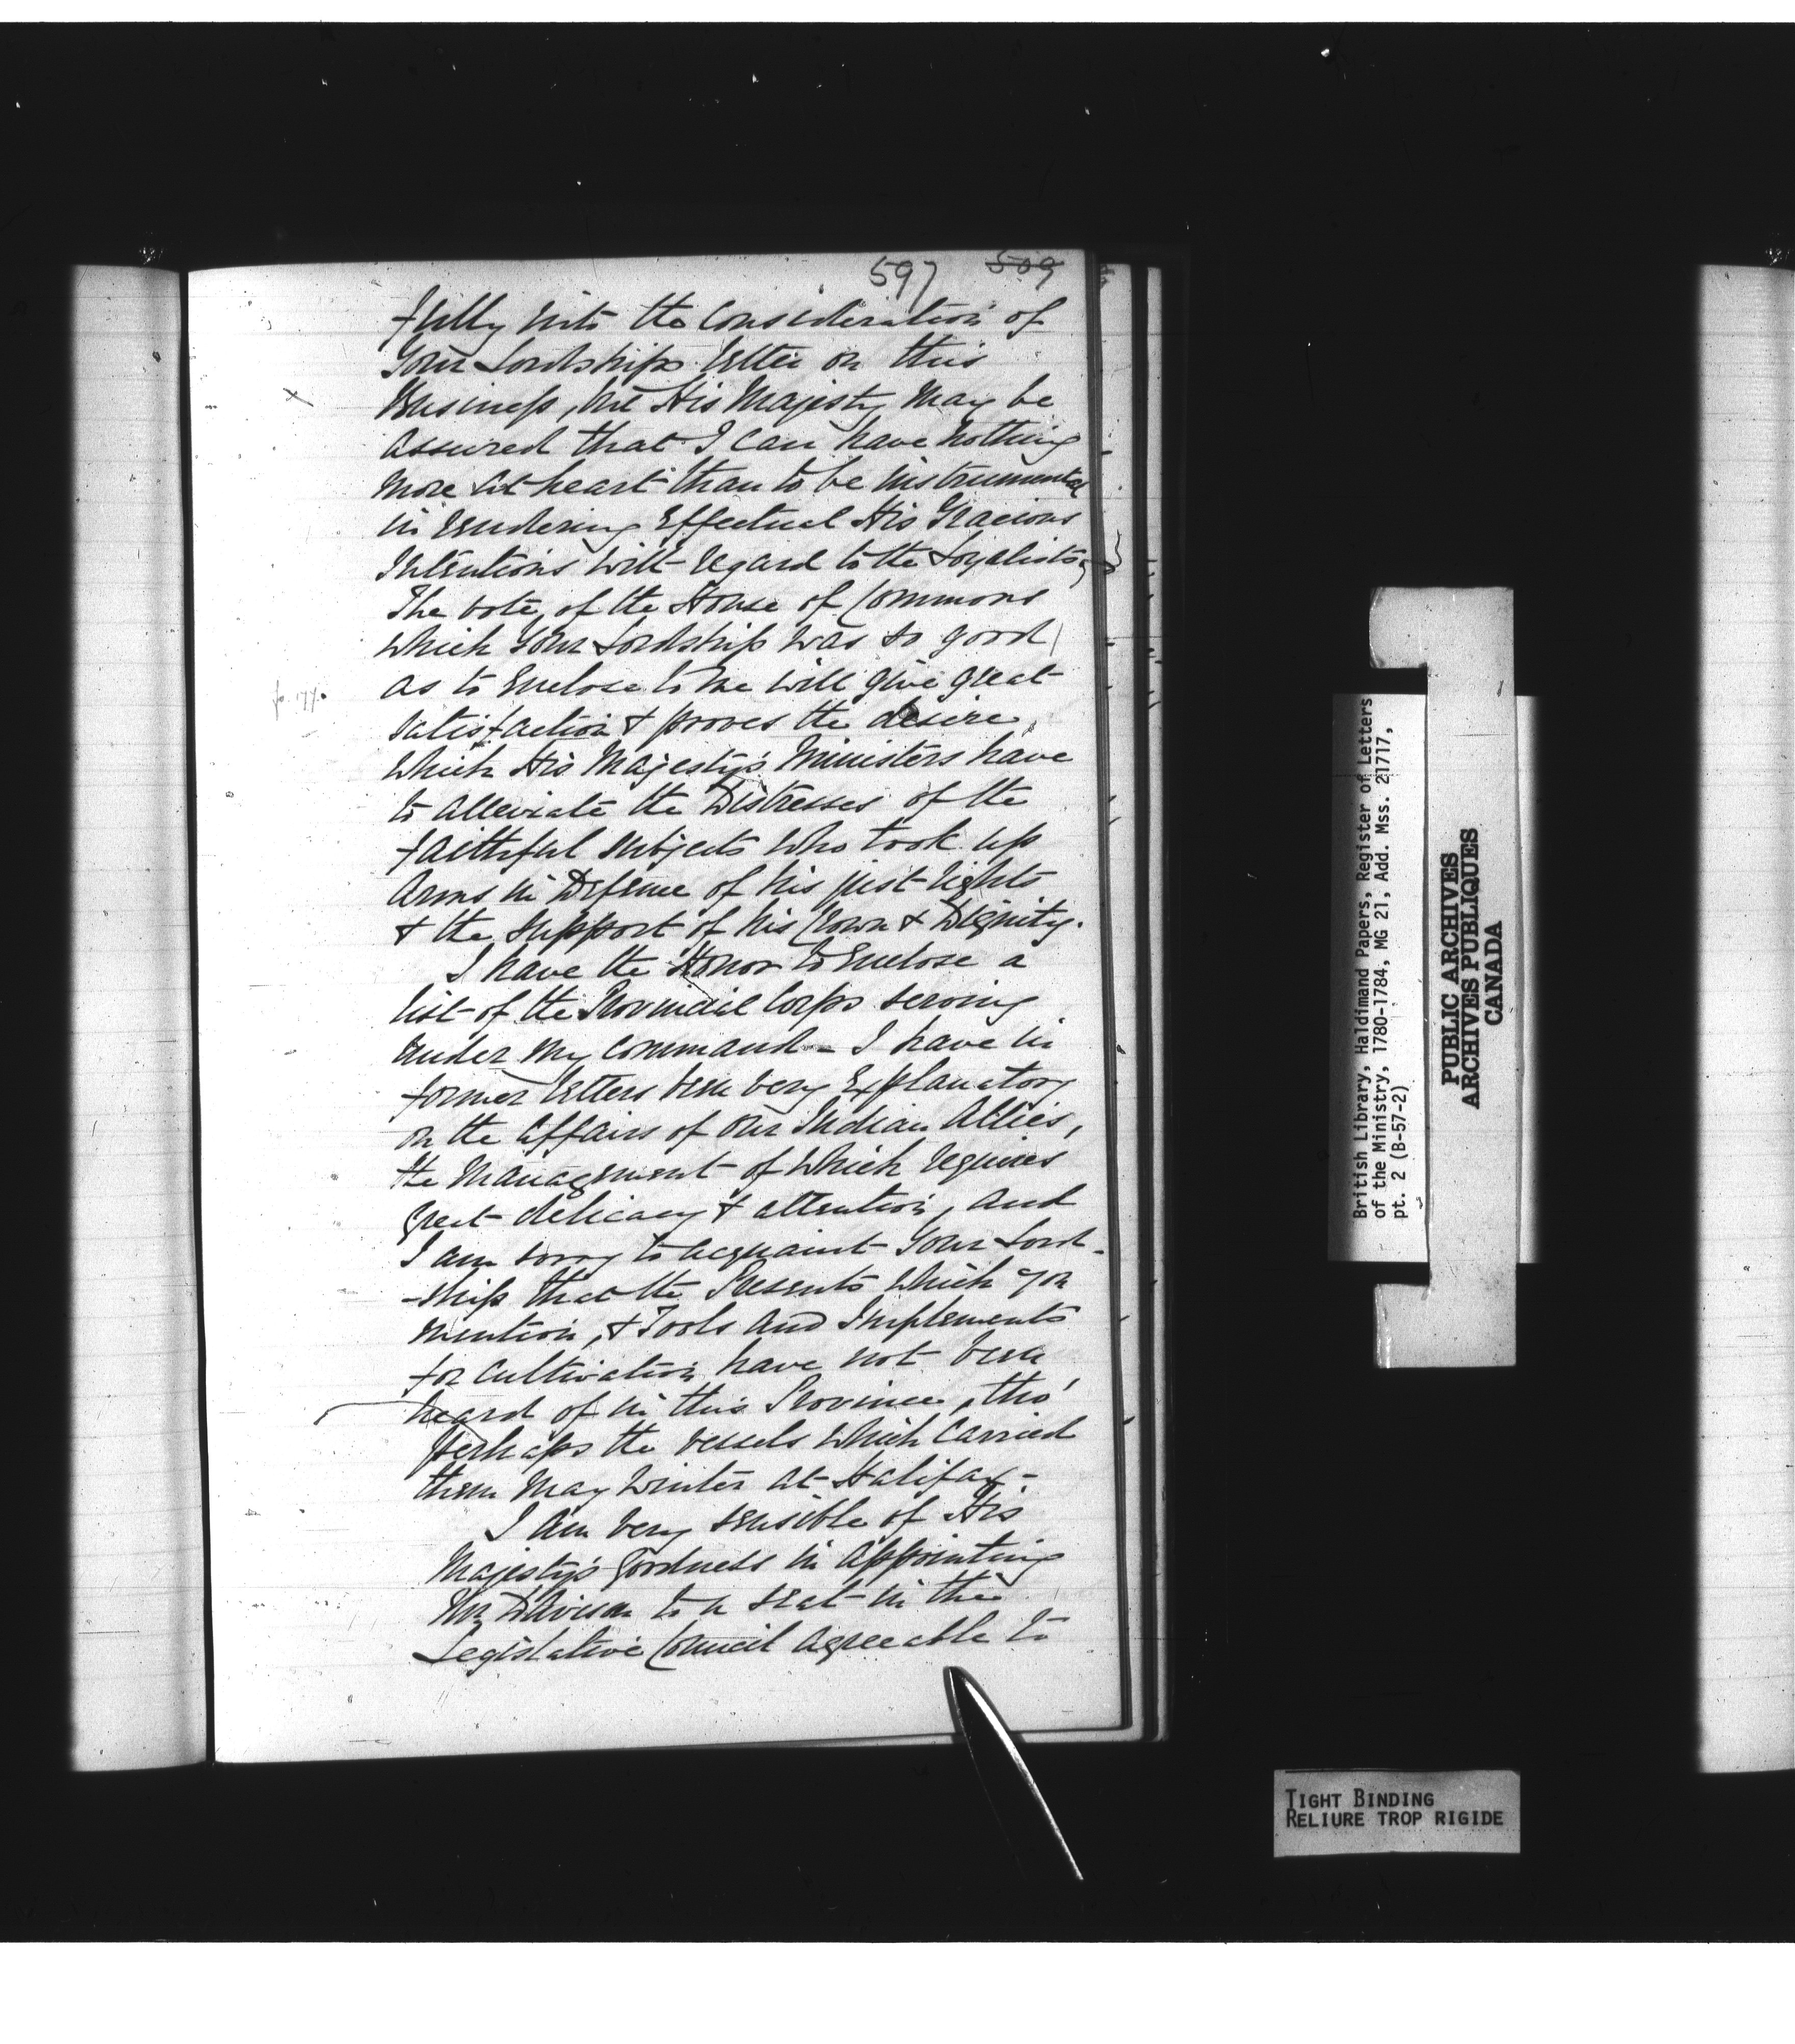 597 509
fully into the Consideration of
Your Lordships letter on this
Business, but His Majesty may be
assured that I can have nothing
more at heart than to be instrumental
in rendering Effectual His Gracious
Intentions with regard to the Loyalists,
The vote of the House of Commons
which Your Lordship was so good
as to Enclose to me will give great
satisfaction & proves the desire
which His Majesty's Ministers have
to alleviate the Distresses of the
faithful subjects who took up
Arms in Defense of his just rights
& the support of his Crown & Dignity.
I have the Honor to Enclose a
list of the Provincial Corps serving
under my command - I have in
former letters been very Explanatory
on the affairs of our Indian Allies,
the management of which requires
great delicacy & attention, and
I am sorry to acquaint Your Lord-
-ship that the Presents which you
mention, & Tools and Implements
for cultivation have not been
heard of in this Province, tho'
perhaps the vessels which carried
them may winter at Halifax -
I am very sensible of His
Majesty's goodness in appointing
Mr Davison to a seat in the
Legislative Council agreeable to
British Library, Haldimand Papers, Register of Letters
of the Ministry, 1780-1784, MG 21, Add. Mss. 21717,
pt. 2 (B-57-2)
PUBLIC ARCHIVES
ARCHIVES PUBLIQUES
CANADA
TIGHT BINDING
RELIURE TROP RIGIDE